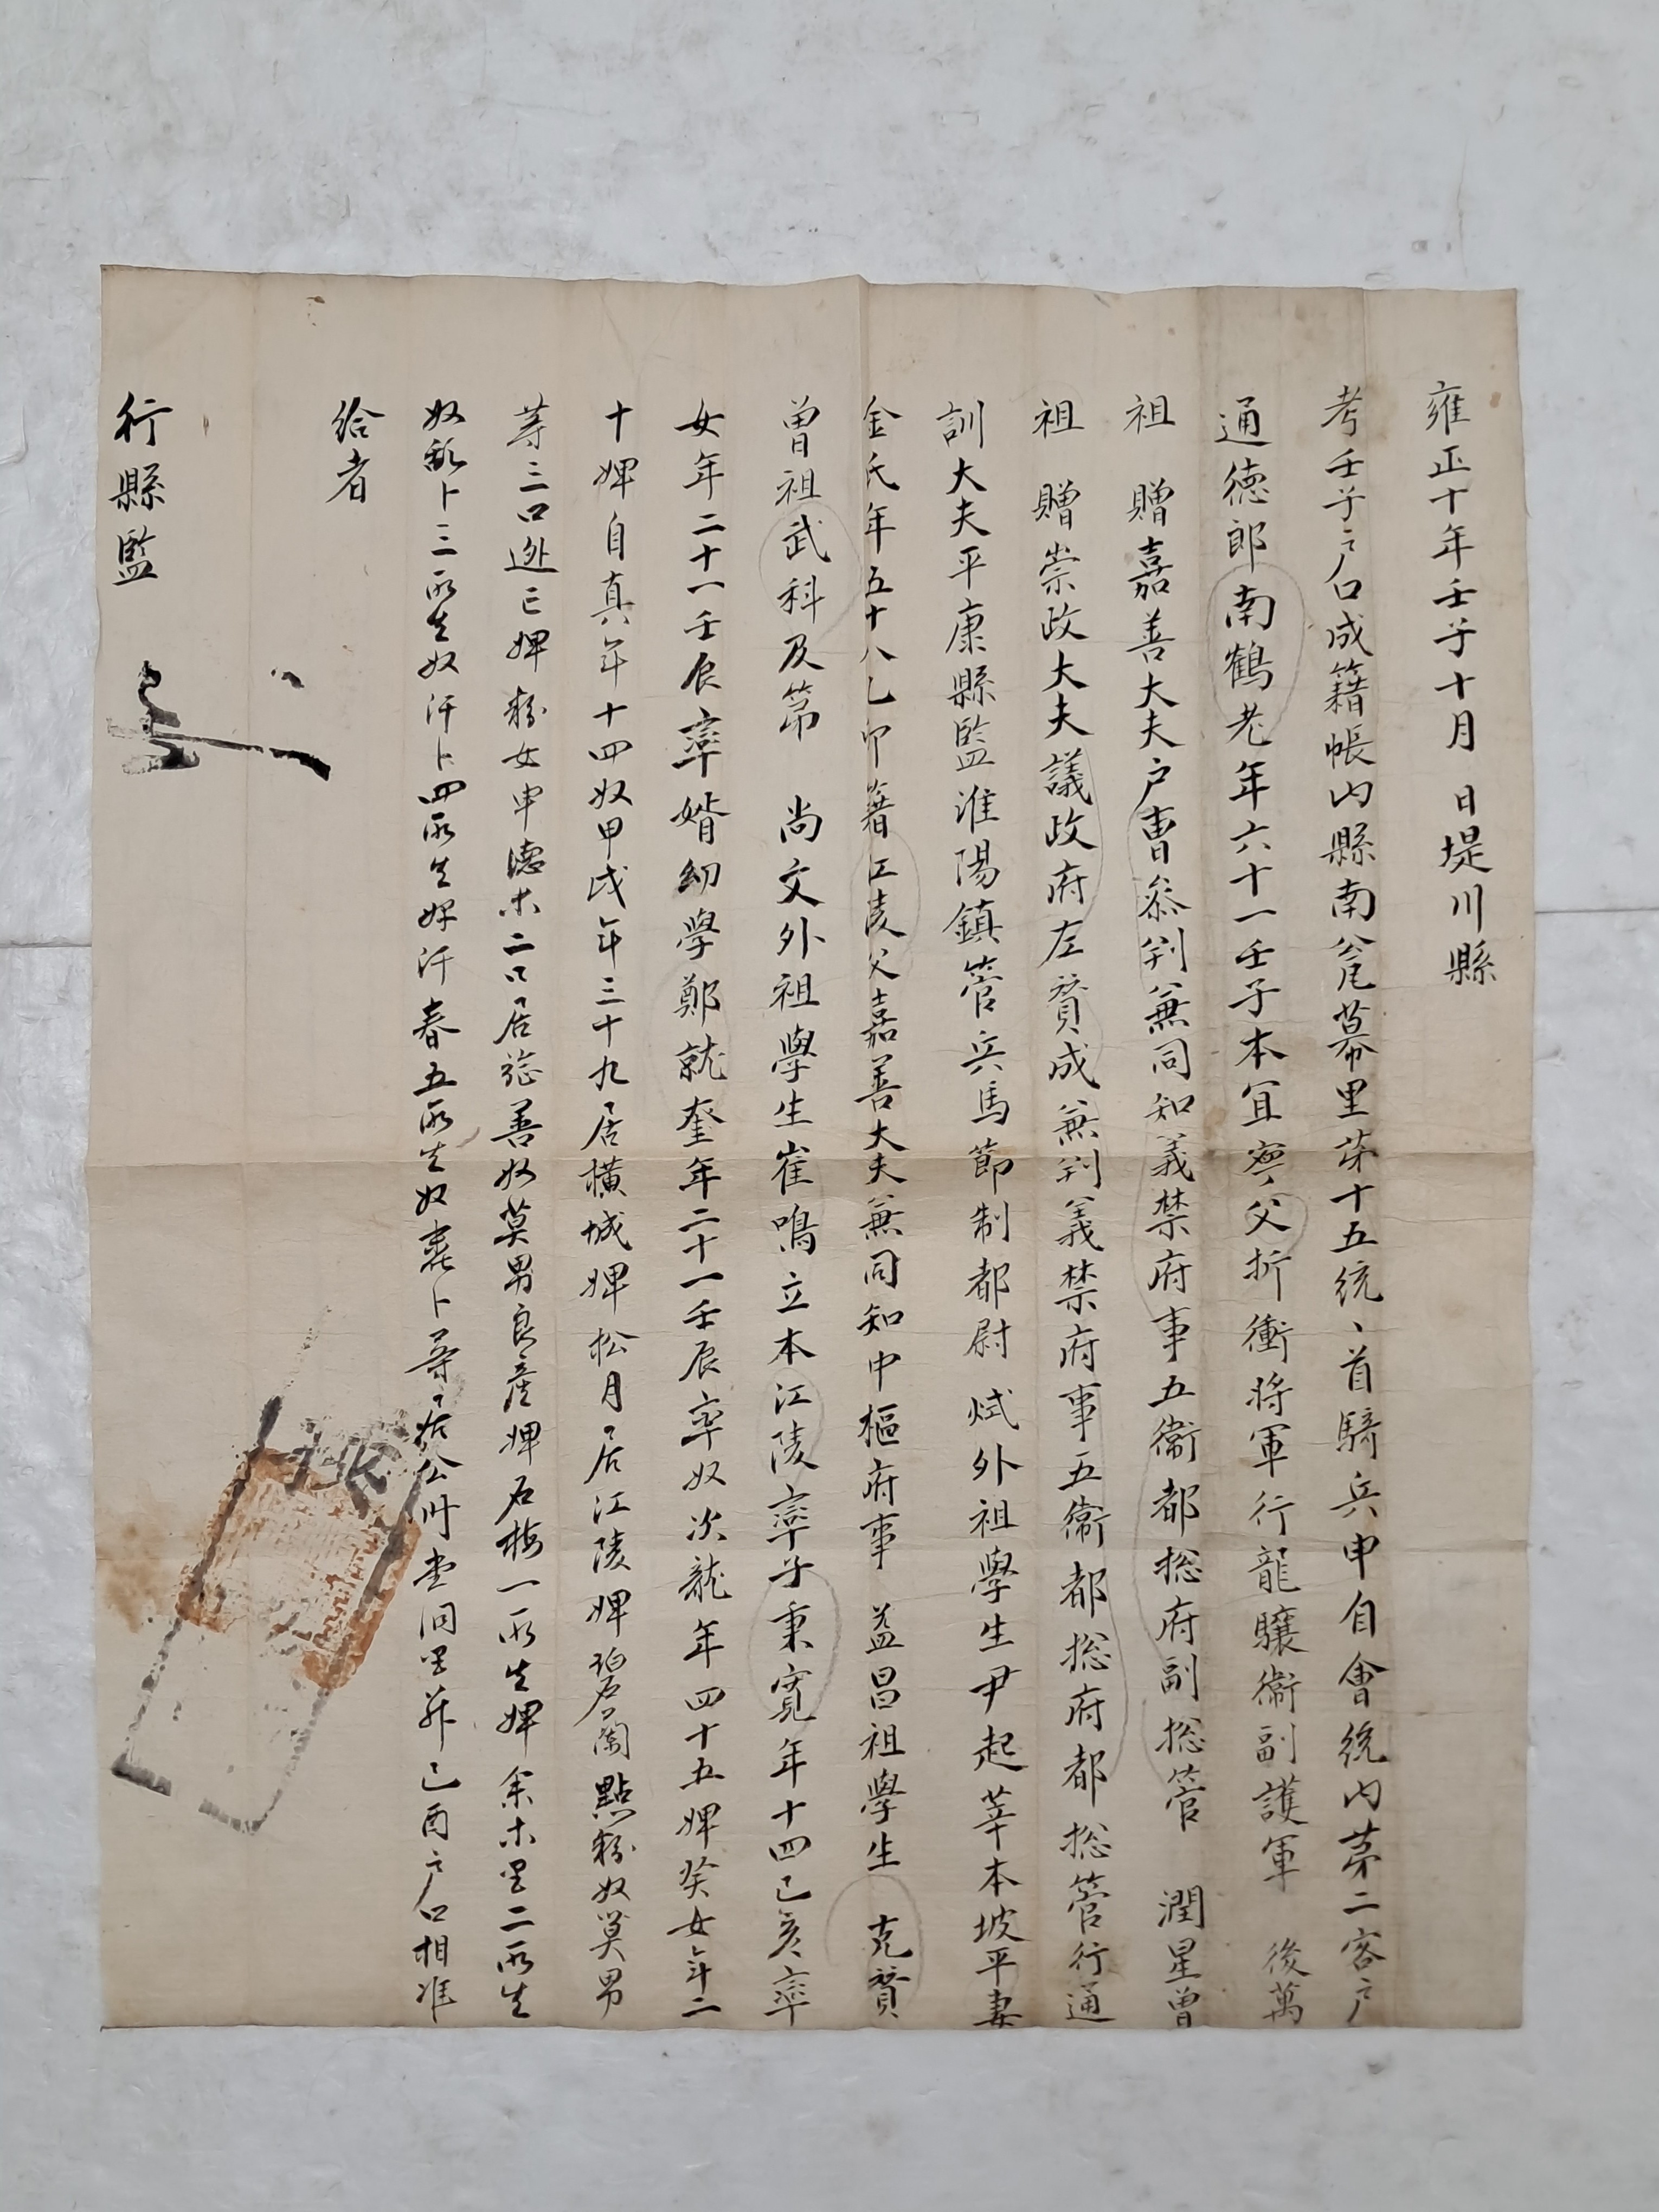 雍正十年壬子十月 日堤川縣
考壬子戶口成籍帳內縣南瓮幕里第十五統、首騎兵申自會統內第二客戶
通德郎南鶴老年六十一壬子本宜寧父折衝將軍行龍驤衛副護軍 後萬
祖 贈嘉善大夫戶曹叅判兼同知義禁府事五衛都摠府副摠管 潤星曾
祖 贈崇政大夫議政府左贊成兼判義禁府事五衛都摠府都摠管行通
訓大夫平康縣監淮陽鎮管兵馬節制都尉 烒外祖學生尹起莘本坡平妻
金氏年五十八乙卯籍江陵父嘉善大夫兼同知中樞府事 益昌祖學生 克贇
曾祖武科及第 尚文外祖學生崔鳴立本江陵率子秉寬年十四己亥率
女年二十一壬辰率婿幼學鄭就奎年二十一壬辰率奴次龍年四十五婢癸女年二
十婢自真年十四奴甲戌年三十九居橫城婢松月居江陵婢碧蘭點粉奴莫男
等三口逃亡婢粉女申德等二口居 善奴莫男良産婢石梅一所生婢 二所生
奴 卜三所生奴汗卜四所生婢汗春五所生奴 卜等居公州 洞里 己酉戶口相准
給者
行縣監